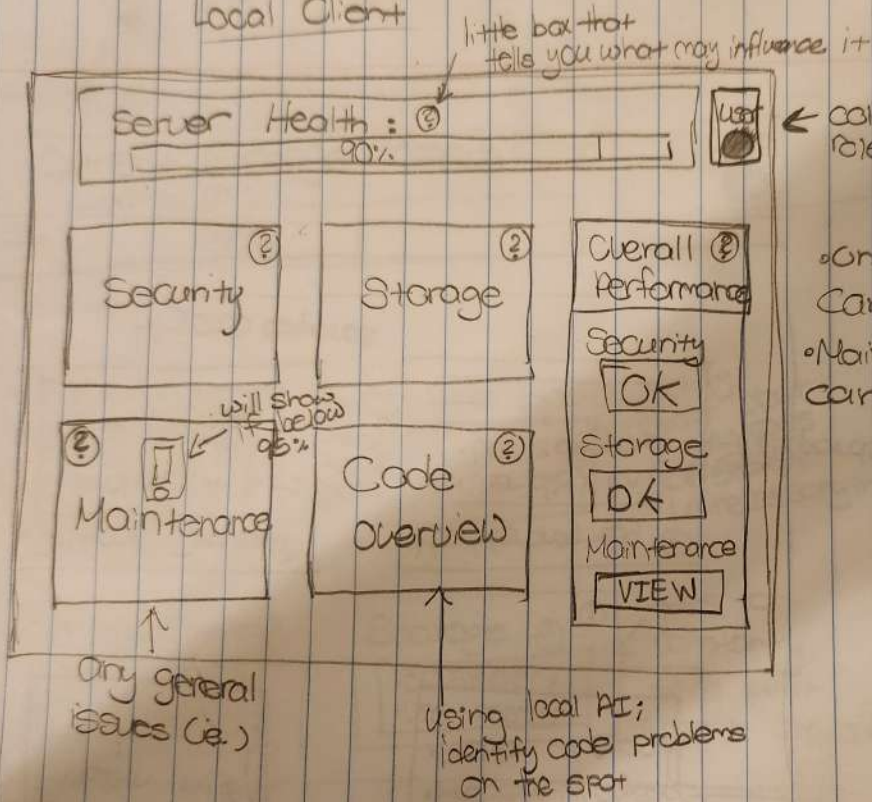 Local Client
little box that
tells you what may influence it
Server Health : ?
90%
user
Security ?
Storage ?
Overall ?
Performance
Security
OK
Storage
OK
Maintenance
VIEW
will show
if below
95%
? !
Maintenance
Code ?
overview
any general
issues (ie.)
using local AI;
identify code problems
on the spot